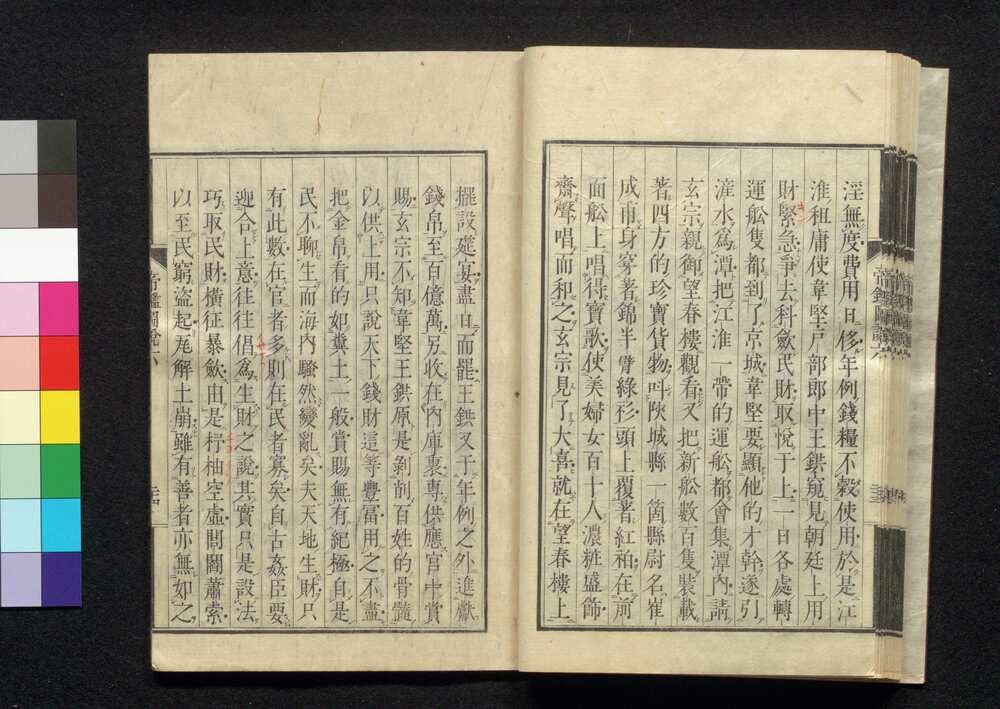 淫無度費用日侈年例錢糧不彀使用於是江
淮租庸使韋堅戶部郎中王鉷窺見朝廷上用
財緊急爭去科斂民財取悅于上一日各處轉
運舩隻都到了京城韋堅要顯他的才幹遂引
滻水爲潭把江淮一帶的運舩都會集潭內請
玄宗親御望春樓觀看又把新舩數百隻裝載
著四方的珍寶貨物呌陝城縣一箇縣尉名崔
成甫身穿著錦半臂綠衫頭上覆著紅袙在前
面舩上唱得寶歌使美婦女百十人濃粧盛飾
齊聲唱而和之玄宗見了大喜就在望春樓上
擺設筵宴盡日而罷王鉷又于年例之外進獻
錢帛至百億萬另收在內庫裏專供應官中賞
賜玄宗不知韋堅王鉷原是剝削百姓的骨髓
以供上用只說天下錢財這等豐富用之不盡
把金帛看的如糞土一般賞賜無有紀極自是
民不聊生而海內騷然變亂矣夫天地生財只
有此數在官者多則在民者寡矣自古姦臣要
迎合上意往往倡爲生財之說其實只是設法
巧取民財橫征暴斂由是杼柚空虛閭閻蕭索
以至民窮盜起瓦解土崩雖有善者亦無如之
帝鑑圖說六